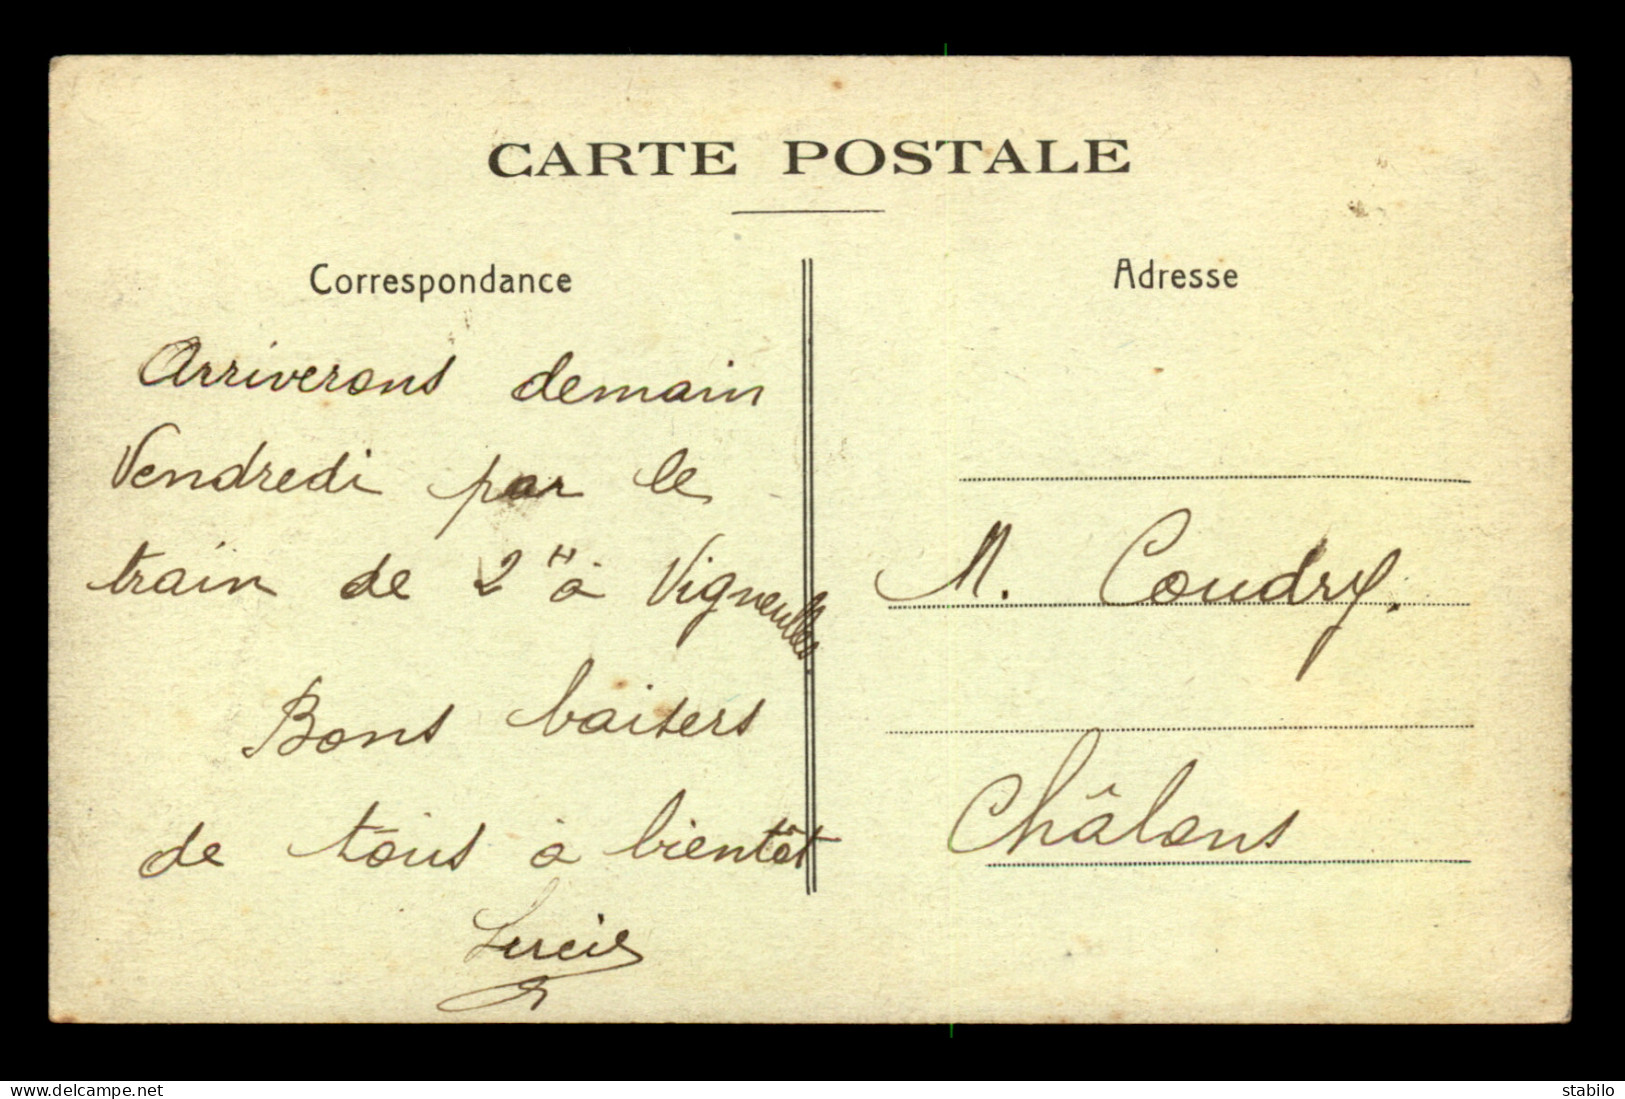 CARTE POSTALE
Correspondance
Adresse
Arriverons demain
Vendredi par le
train de 2H à Vigneulles.
Bons baisers
de tous à bientôt
Lucie
M. Coudry.
Châlons
delcampe.net
stabilo